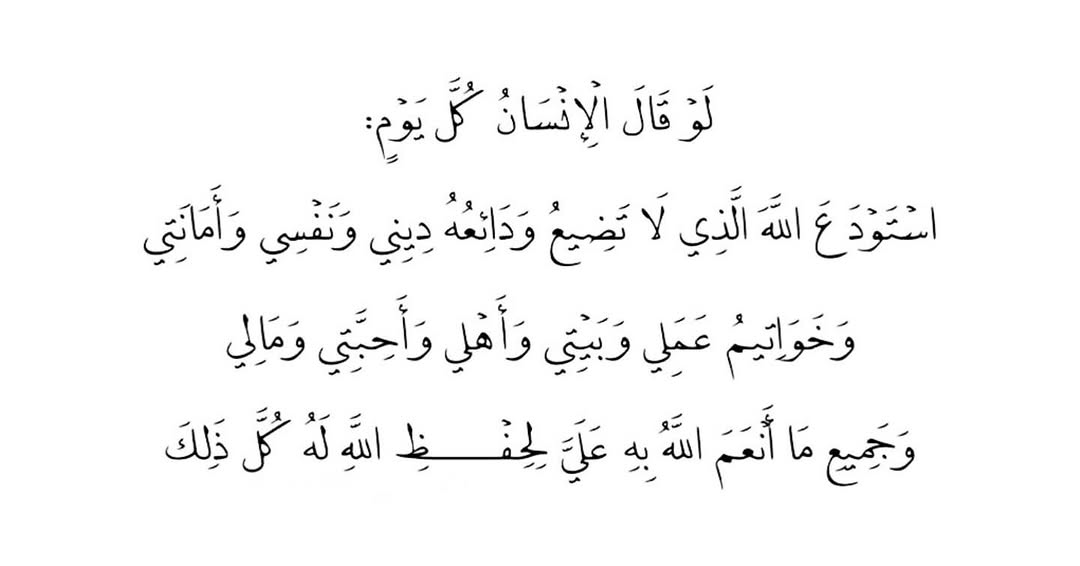 لَوْ قَالَ الْإِنْسَانُ كُلَّ يَوْمٍ:
اسْتَوْدَعَ اللَّهَ الَّذِي لَا تَضِيعُ وَدَائِعُهُ دِينِي وَنَفْسِي وَأَمَانَتِي
وَخَوَاتِيمُ عَمَلِي وَبَيْتِي وَأَهْلِي وَأَحِبَّتِي وَمَالِي
وَجَمِيعِ مَا أَنْعَمَ اللَّهُ بِهِ عَلَيَّ لِحِفْـــــظِ اللَّهِ لَهُ كُلَّ ذَلِكَ